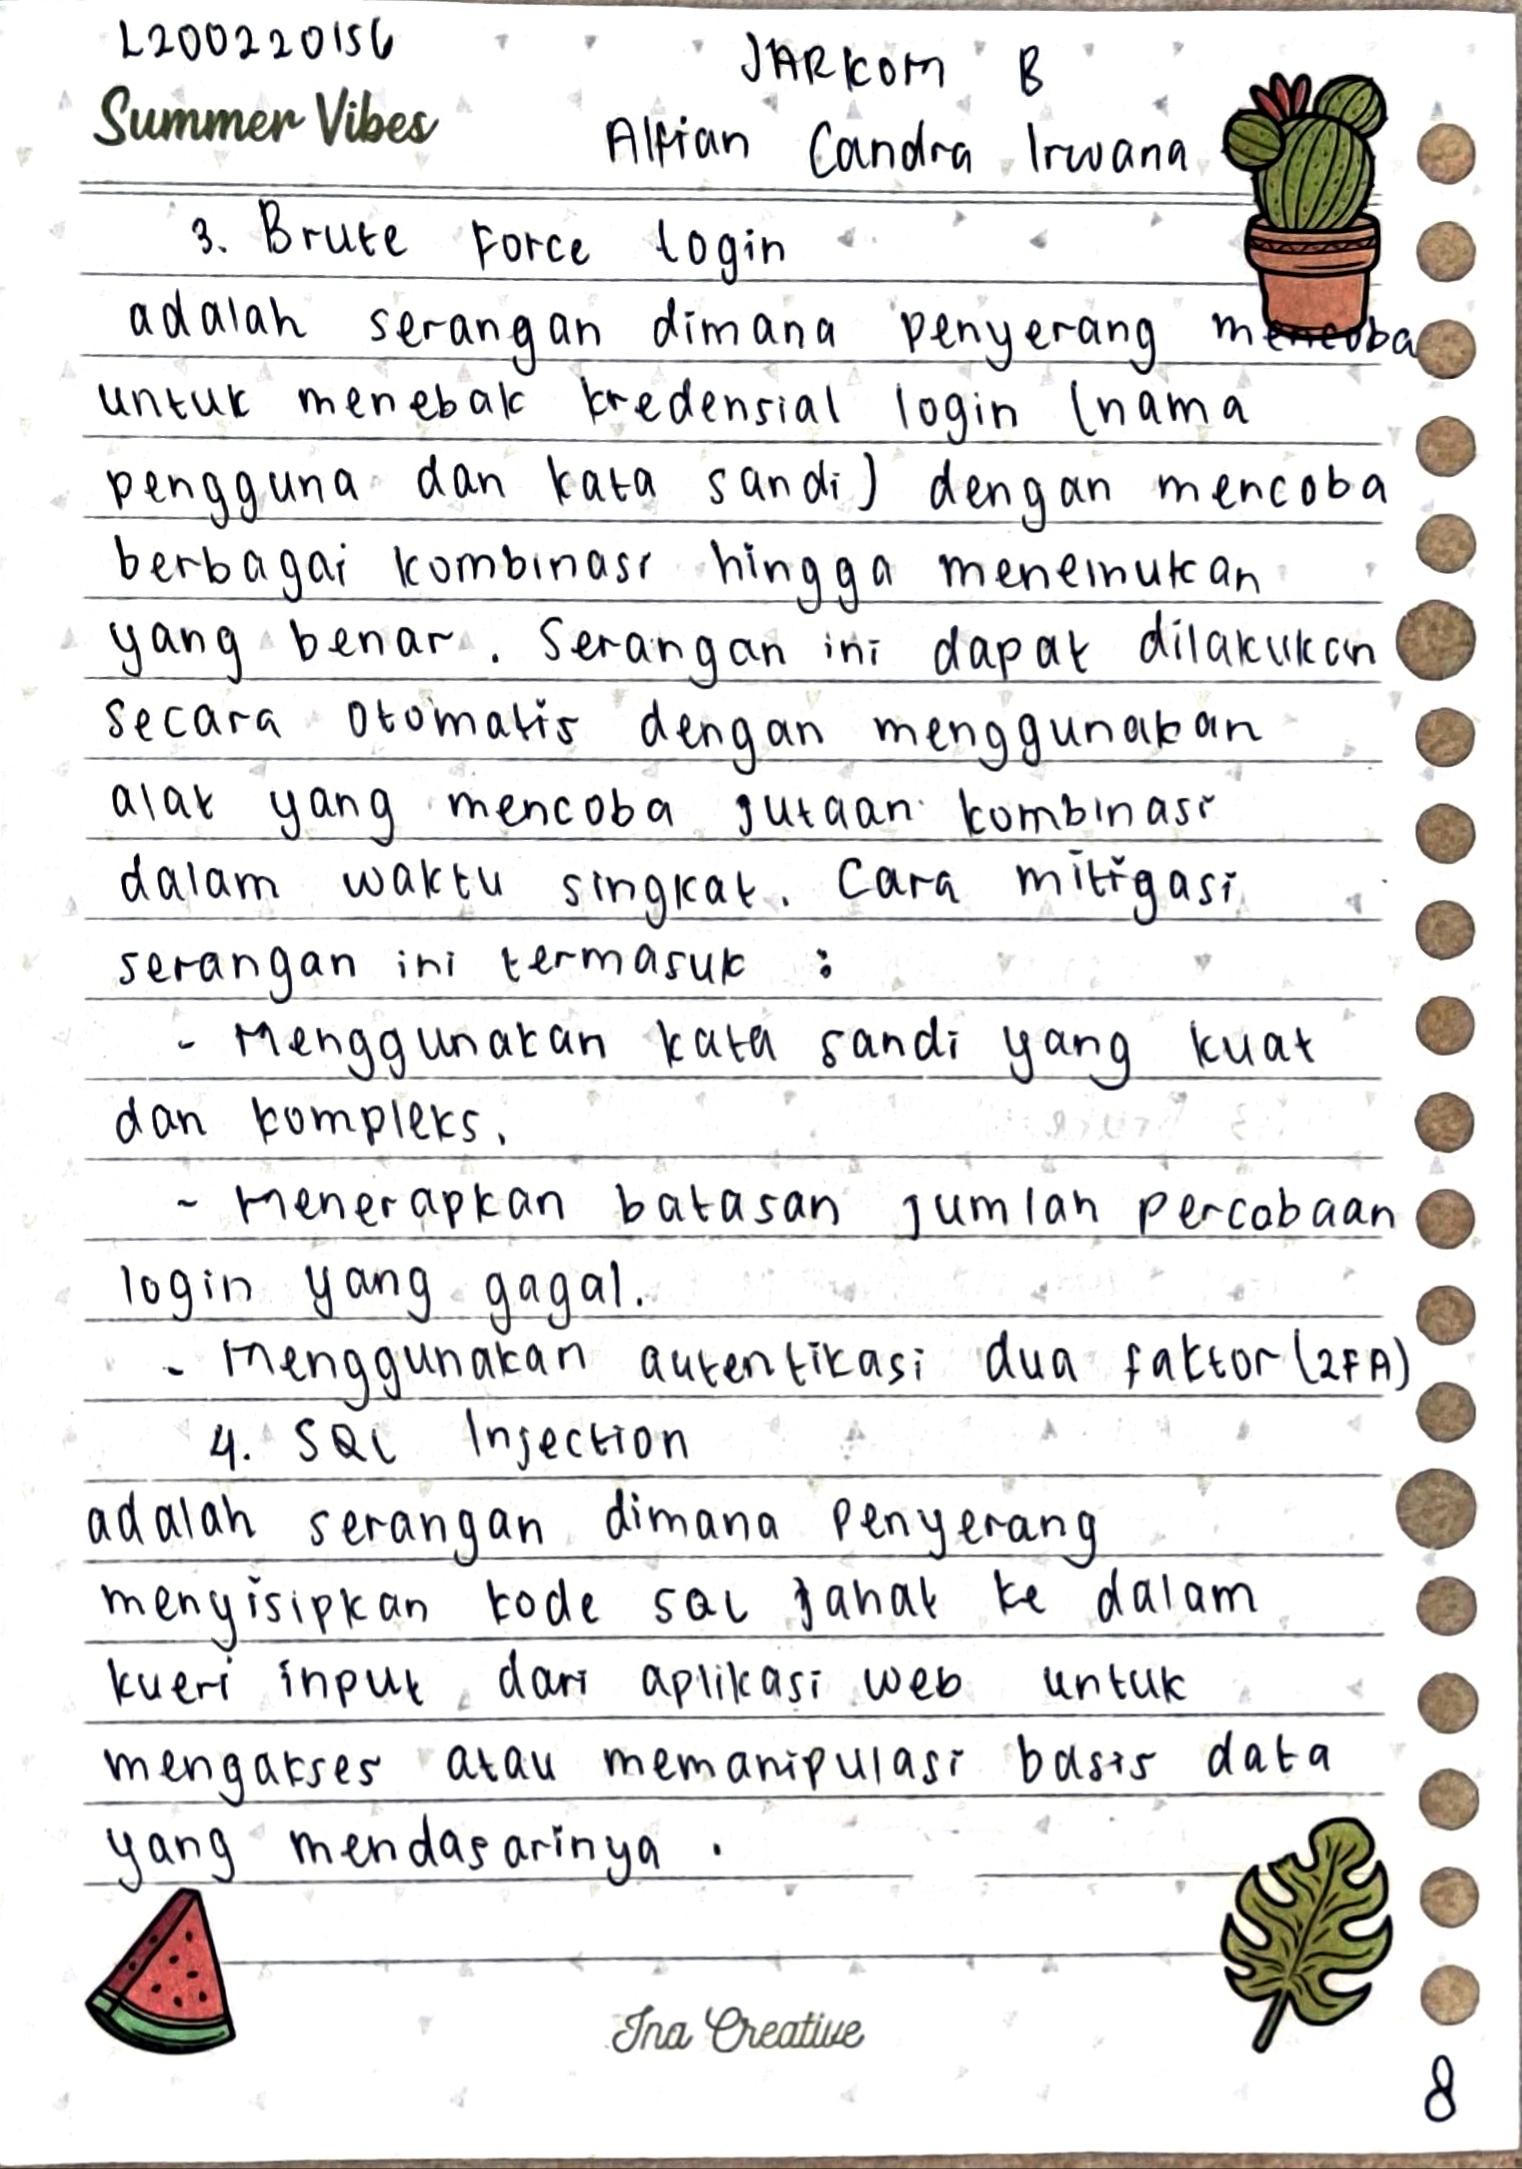 L200220156
JARKOM B
Summer Vibes
Alfian Candra Irwana
3. Brute Force login
adalah serangan dimana penyerang mencoba
untuk menebak kredensial login (nama
pengguna dan kata sandi) dengan mencoba
berbagai kombinasi hingga menemukan
yang benar. Serangan ini dapat dilakukan
secara otomatis dengan menggunakan
alat yang mencoba jutaan kombinasi
dalam waktu singkat. Cara mitigasi
serangan ini termasuk :
- Menggunakan kata sandi yang kuat
dan kompleks.
- Menerapkan batasan jumlah percobaan
login yang gagal.
- Menggunakan autentikasi dua faktor (2FA)
4. SQL Injection
adalah serangan dimana penyerang
menyisipkan kode SQL jahat ke dalam
kueri input dari aplikasi web untuk
mengakses atau memanipulasi basis data
yang mendasarinya.
Ina Creative
8